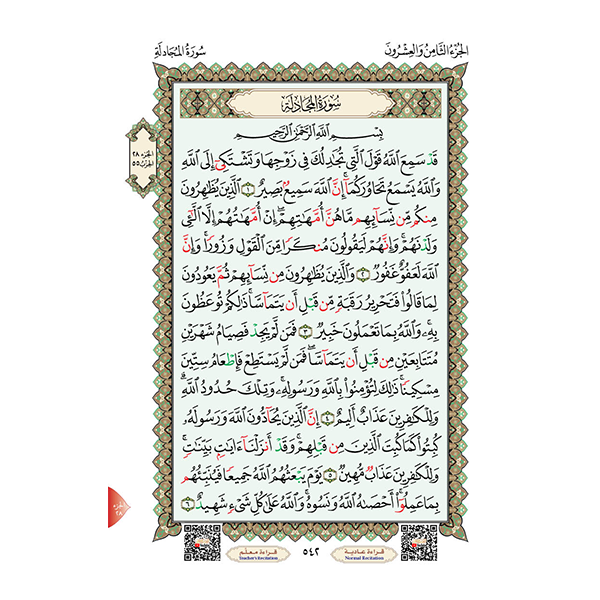 سُورَةُ المُجَادلَةِ
الجُزْءُ الثَّامِنُ وَالعِشْرُونَ
سُورَةُ المُجَادلَةِ
بِسْمِ ٱللَّهِ ٱلرَّحْمَٰنِ ٱلرَّحِيمِ
الجزء ٢٨
الحزب ٥٥
قَدْ سَمِعَ ٱللَّهُ قَوْلَ ٱلَّتِى تُجَٰدِلُكَ فِى زَوْجِهَا وَتَشْتَكِىٓ إِلَى ٱللَّهِ
وَٱللَّهُ يَسْمَعُ تَحَاوُرَكُمَآ ۚ إِنَّ ٱللَّهَ سَمِيعٌۢ بَصِيرٌ ١ ٱلَّذِينَ يُظَٰهِرُونَ
مِنكُم مِّن نِّسَآئِهِم مَّا هُنَّ أُمَّهَٰتِهِمْ ۖ إِنْ أُمَّهَٰتُهُمْ إِلَّا ٱلَّٰٓـِٔى
وَلَدْنَهُمْ ۚ وَإِنَّهُمْ لَيَقُولُونَ مُنكَرًا مِّنَ ٱلْقَوْلِ وَزُورًا ۚ وَإِنَّ
ٱللَّهَ لَعَفُوٌّ غَفُورٌ ٢ وَٱلَّذِينَ يُظَٰهِرُونَ مِن نِّسَآئِهِمْ ثُمَّ يَعُودُونَ
لِمَا قَالُوا۟ فَتَحْرِيرُ رَقَبَةٍ مِّن قَبْلِ أَن يَتَمَآسَّا ۚ ذَٰلِكُمْ تُوعَظُونَ
بِهِۦ ۚ وَٱللَّهُ بِمَا تَعْمَلُونَ خَبِيرٌ ٣ فَمَن لَّمْ يَجِدْ فَصِيَامُ شَهْرَيْنِ
مُتَتَابِعَيْنِ مِن قَبْلِ أَن يَتَمَآسَّا ۖ فَمَن لَّمْ يَسْتَطِعْ فَإِطْعَامُ سِتِّينَ
مِسْكِينًا ۚ ذَٰلِكَ لِتُؤْمِنُوا۟ بِٱللَّهِ وَرَسُولِهِۦ ۚ وَتِلْكَ حُدُودُ ٱللَّهِ ۗ
وَلِلْكَٰفِرِينَ عَذَابٌ أَلِيمٌ ٤ إِنَّ ٱلَّذِينَ يُحَآدُّونَ ٱللَّهَ وَرَسُولَهُۥ
كُبِتُوا۟ كَمَا كُبِتَ ٱلَّذِينَ مِن قَبْلِهِمْ ۚ وَقَدْ أَنزَلْنَآ ءَايَٰتٍۭ بَيِّنَٰتٍ ۚ
وَلِلْكَٰفِرِينَ عَذَابٌ مُّهِينٌ ٥ يَوْمَ يَبْعَثُهُمُ ٱللَّهُ جَمِيعًا فَيُنَبِّئُهُم
بِمَا عَمِلُوٓا۟ ۚ أَحْصَىٰهُ ٱللَّهُ وَنَسُوهُ ۚ وَٱللَّهُ عَلَىٰ كُلِّ شَىْءٍ شَهِيدٌ ٦
الجزء
٢٨
قراءة معلم
Teacher's Recitation
٥٤٢
قراءة عادية
Normal Recitation